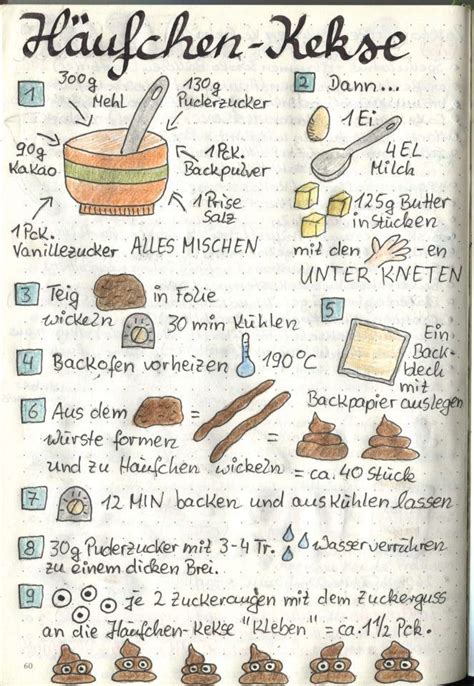 Häufchen-Kekse
1
300g Mehl
130g Puderzucker
90g Kakao
1 Pck. Backpulver
1 Prise Salz
1 Pck. Vanillezucker
ALLES MISCHEN
2 Dann...
1 Ei
4 EL Milch
125g Butter in Stücken
mit den -en
UNTER KNETEN
3 Teig in Folie
wickeln 30 min kühlen
4 Backofen vorheizen 190°C
5 Ein Backblech mit
Backpapier auslegen
6 Aus dem = =
Würste formen
und zu Häufchen wickeln = ca. 40 Stück
7 12 MIN backen und auskühlen lassen
8 30g Puderzucker mit 3-4 Tr. Wasser verrühren
zu einem dicken Brei.
9 Je 2 Zuckeraugen mit dem Zuckerguss
an die Häufchen-Kekse "kleben" = ca. 1 1/2 Pck.
60